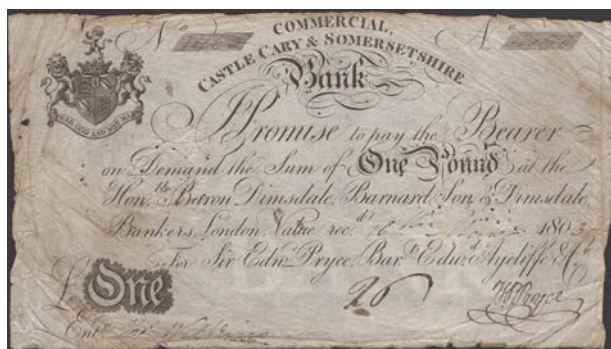 COMMERCIAL,
CASTLE CARY & SOMERSETSHIRE
Nº Nº
Bank
I Promise to pay the Bearer
on Demand the Sum of One Pound at the
Honble Baron Dimsdale, Barnard Son & Dimsdale
Bankers, London, Value recd 1803
For Sir Edwd Pryce, Bart Edwd Aycliffe & Co
£ One
26
Entd